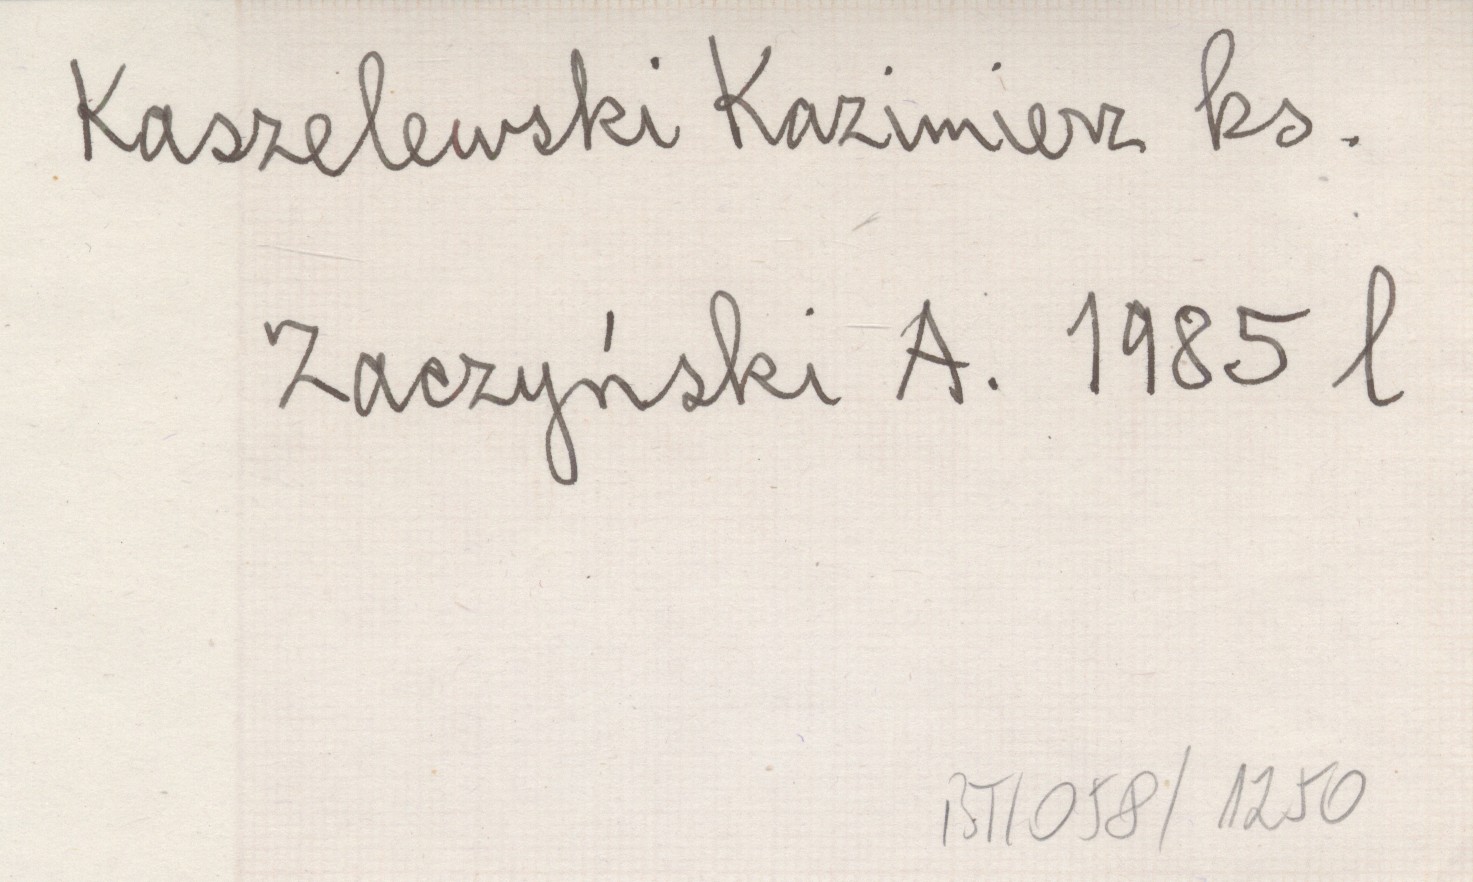 Kaszelewski Kazimierz ks.
Zaczyński A. 1985 l
BT/058/1250